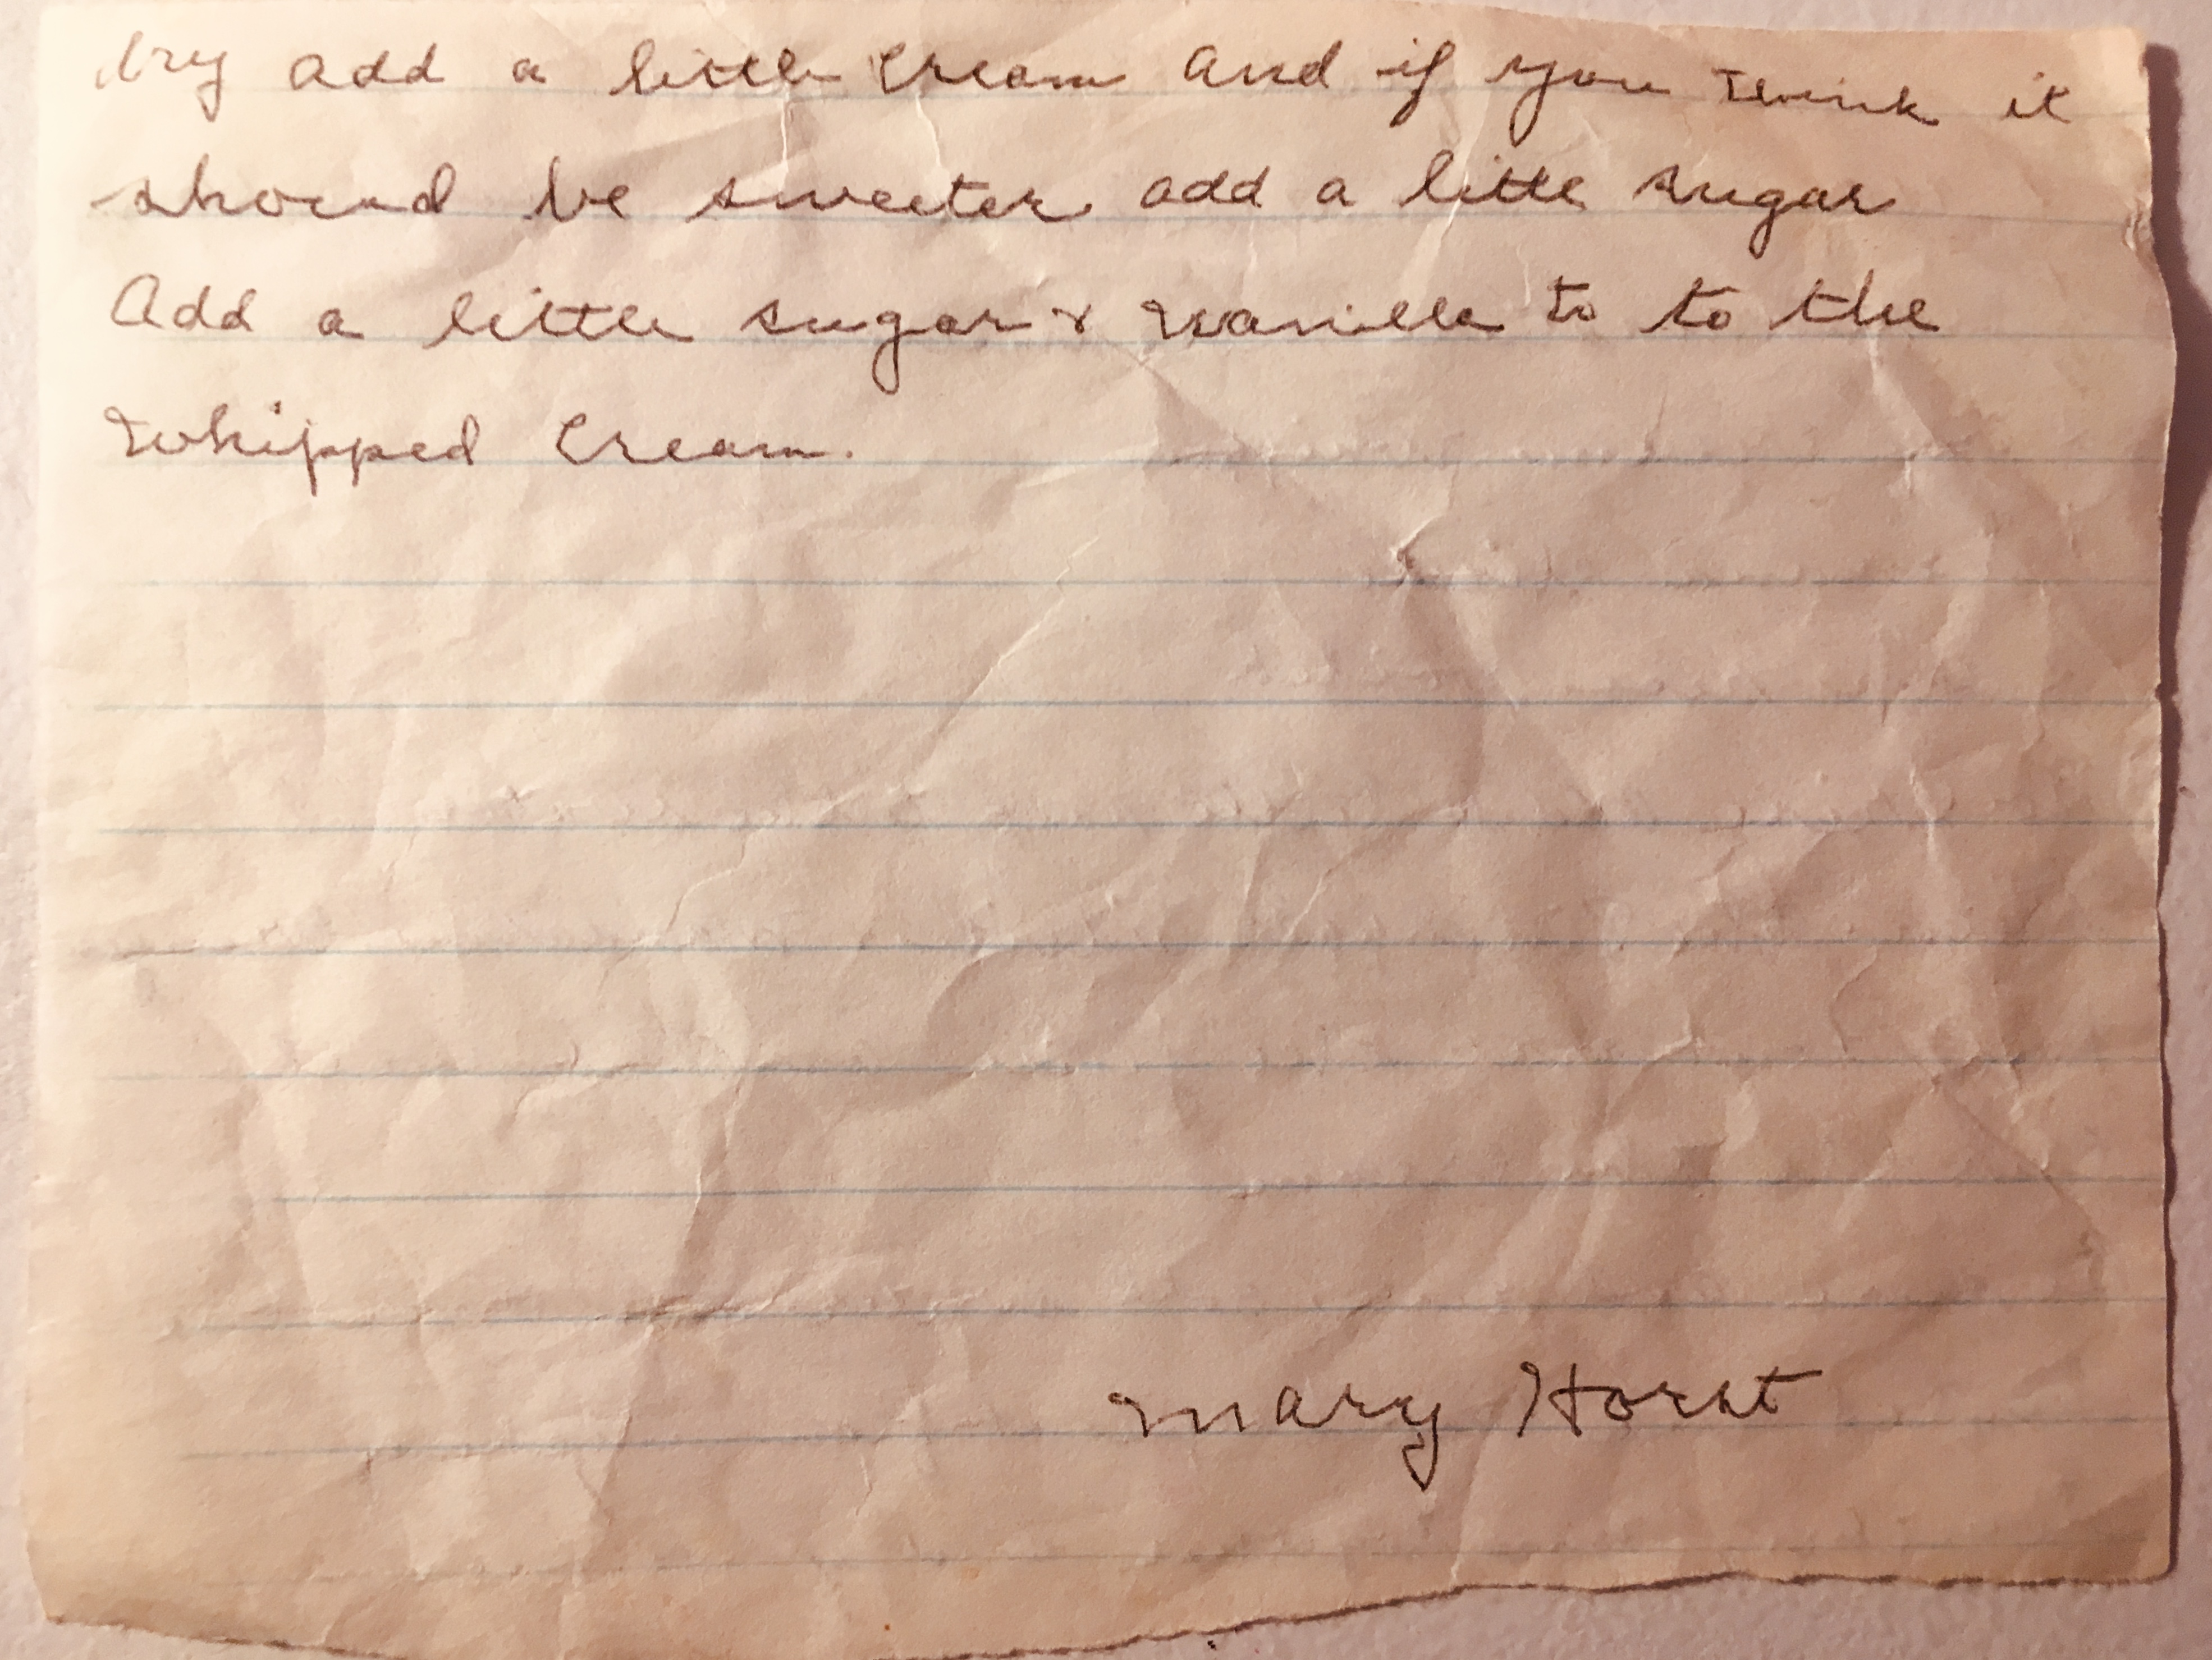 dry add a little cream and if you think it
should be sweeter add a little sugar
Add a little sugar & vanilla to to the
Whipped Cream.
Mary Horst